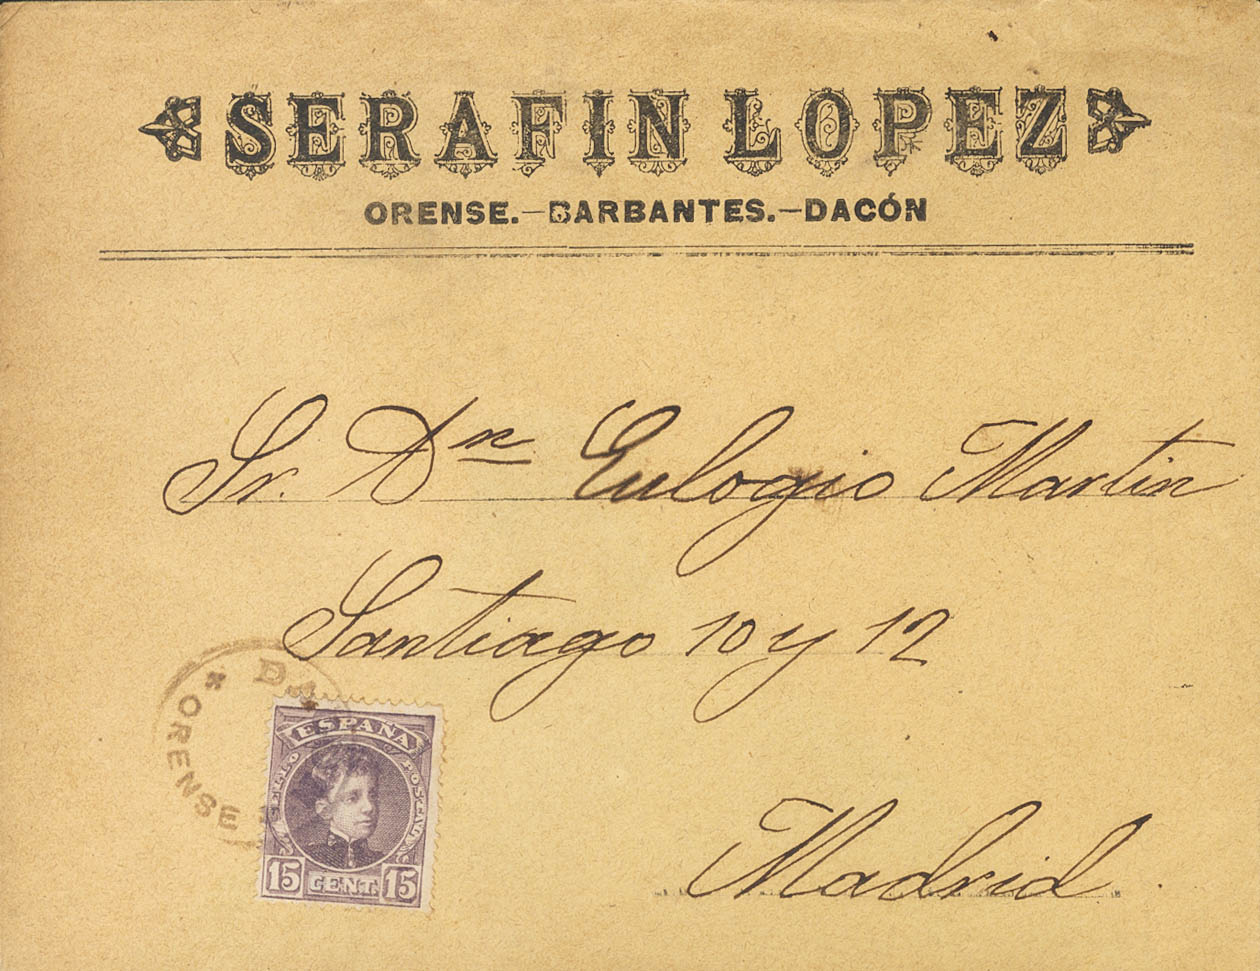 SERAFIN LOPEZ
ORENSE.—BARBANTES.—DACÓN
Sr. Dn Eulogio Martin
Santiago 10 y 12
Madrid
DA
ORENSE
ESPAÑA
SELLO POSTAL
15 CENT. 15